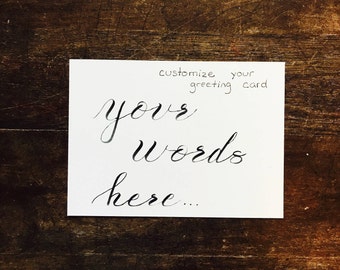 customize your
greeting card
your
words
here...